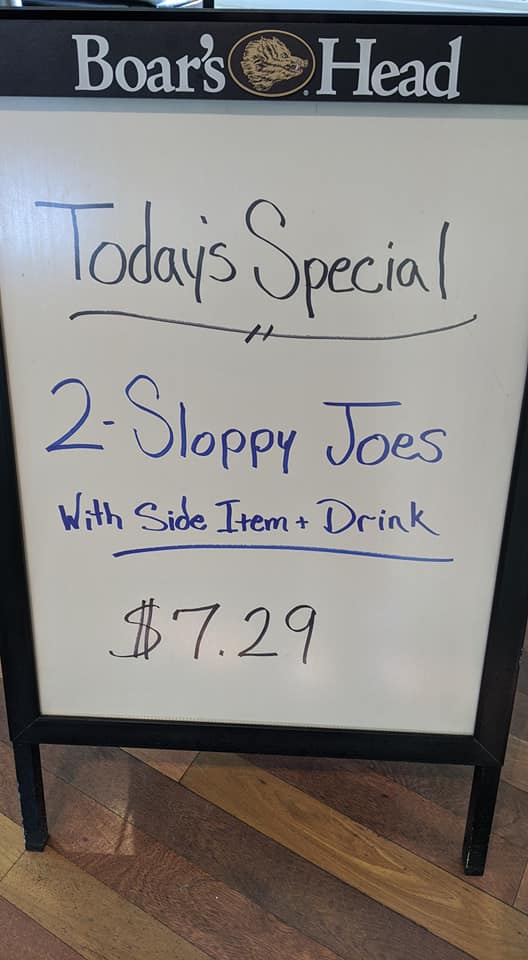 Boar's Head
Today's Special
2-Sloppy Joes
With Side Item + Drink
$7.29